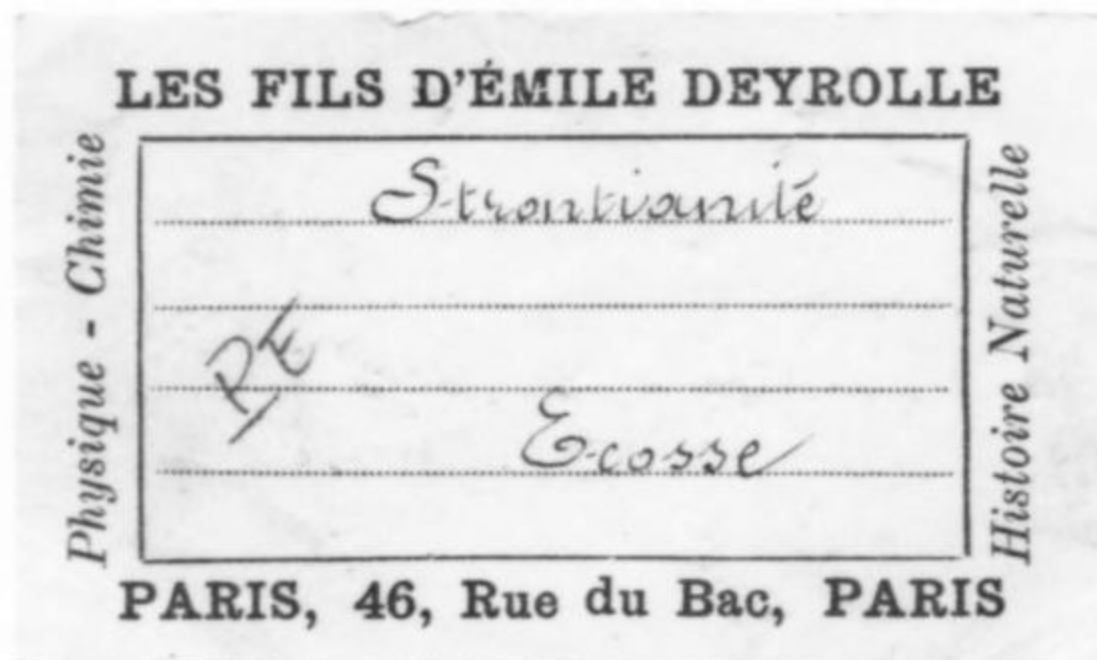 LES FILS D'ÉMILE DEYROLLE
Physique - Chimie
Strontianité
PE
Ecosse
Histoire Naturelle
PARIS, 46, Rue du Bac, PARIS